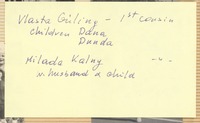 Vlasta Güling - 1st cousin
children Dana
Dunda
Milada Kalny - " -
n. husband & child